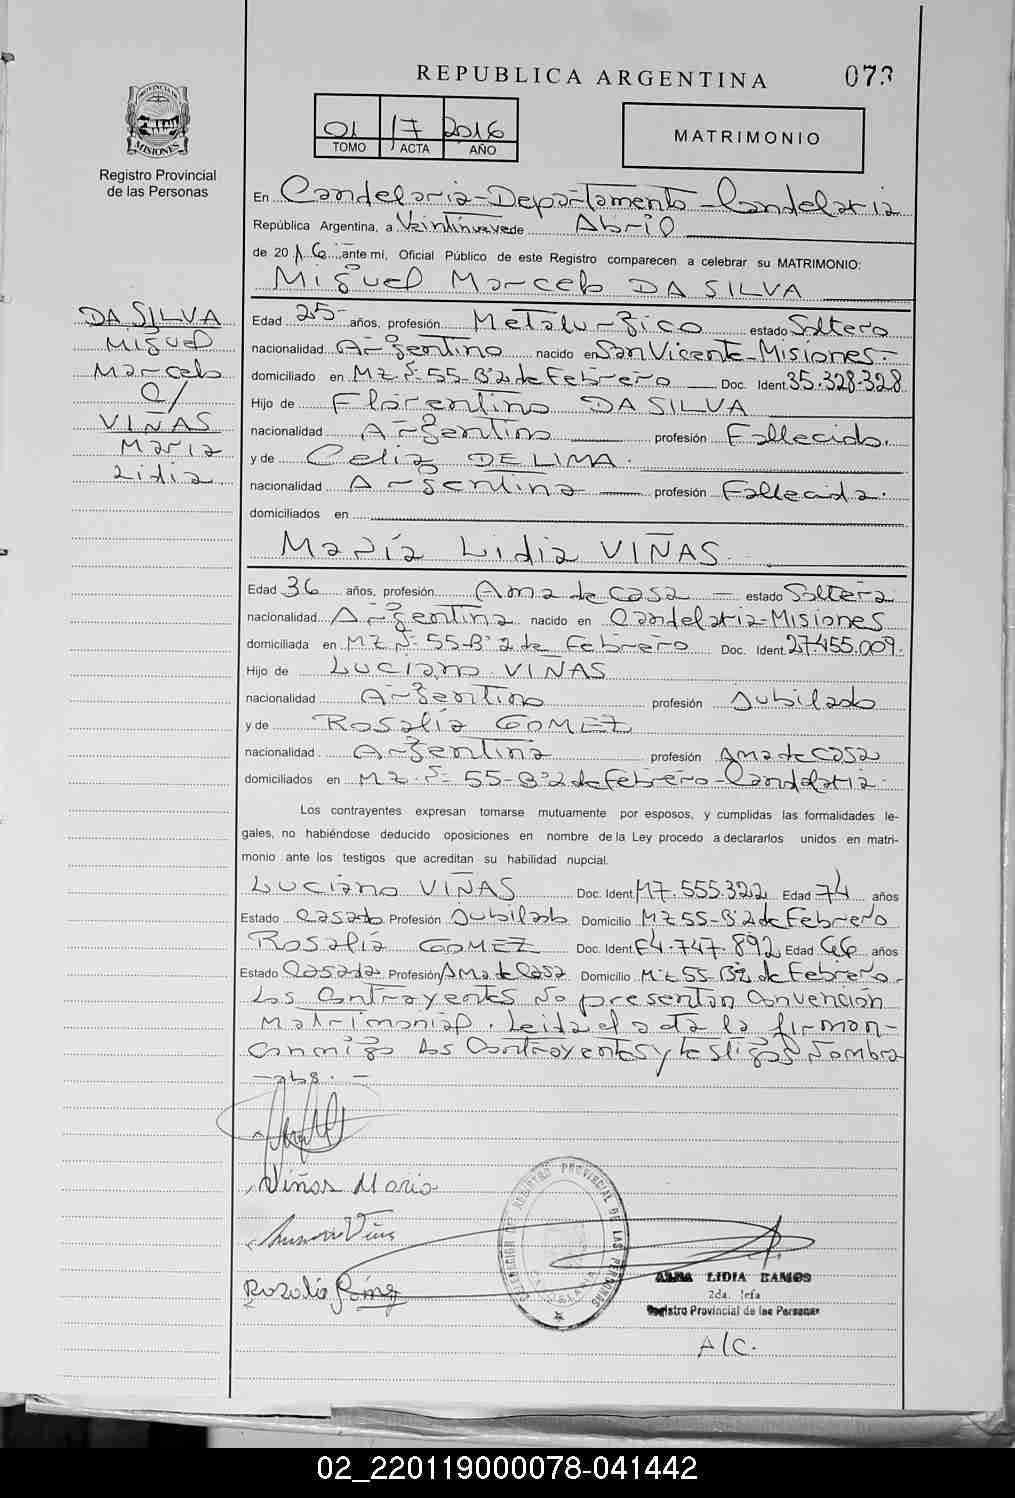 REPUBLICA ARGENTINA
073
01 17 2016
TOMO ACTA AÑO
MATRIMONIO
PROVINCIA DE
MISIONES
Registro Provincial
de las Personas
En Candelaria - Departamento - Candelaria
República Argentina, a Veintinueve de Abril
de 2016, ante mí, Oficial Público de este Registro comparecen a celebrar su MATRIMONIO:
Miguel Marcelo DA SILVA
DA SILVA
Miguel
Marcelo
C/
VIÑAS
Maria
Lidia
Edad 25- años, profesión Metalurgico estado Soltero
nacionalidad Argentino nacido en San Vicente-Misiones-
domiciliado en MZ S- 55-Bº2 de Febrero Doc. Ident. 35.328.328
Hijo de Florentino DA SILVA
nacionalidad Argentino profesión Fallecido.
y de Celia DE LIMA.
nacionalidad Argentina profesión Fallecida.
domiciliados en
María Lidia VIÑAS.
Edad 36 años, profesión Ama de casa - estado Soltera
nacionalidad Argentina nacido en Candelaria-Misiones
domiciliada en MZ S- 55-Bº2 de Febrero Doc. Ident. 27.455.009.
Hijo de Luciano VIÑAS
nacionalidad Argentino profesión Jubilado
y de Rosalía GOMEZ
nacionalidad Argentina profesión Ama de casa
domiciliados en MZ. S- 55-Bº2 de Febrero-Candelaria.
Los contrayentes expresan tomarse mutuamente por esposos, y cumplidas las formalidades le-
gales, no habiéndose deducido oposiciones en nombre de la Ley procedo a declararlos unidos en matri-
monio ante los testigos que acreditan su habilidad nupcial.
Luciano VIÑAS Doc. Ident. M7.555.322 Edad 74 años
Estado Casado Profesión Jubilado Domicilio MZ 55-Bº2 de Febrero
Rosalía GOMEZ Doc. Ident. F4.747.892 Edad 66 años
Estado Casada Profesión Ama de Casa Domicilio MZ 55 Bº2 de Febrero.
Los Contrayentes No presentan Convención
Matrimonial. Leida el acta la firman
conmigo los Contrayentes y testigos Nombra
-dos. -
Viñas Maria
Viñas
Rosalía
DELEGACION DE REGISTRO PROVINCIAL DE LAS PERSONAS
LIDIA RAMOS
2da. Jefa
Registro Provincial de las Personas
A/C.
02_220119000078-041442